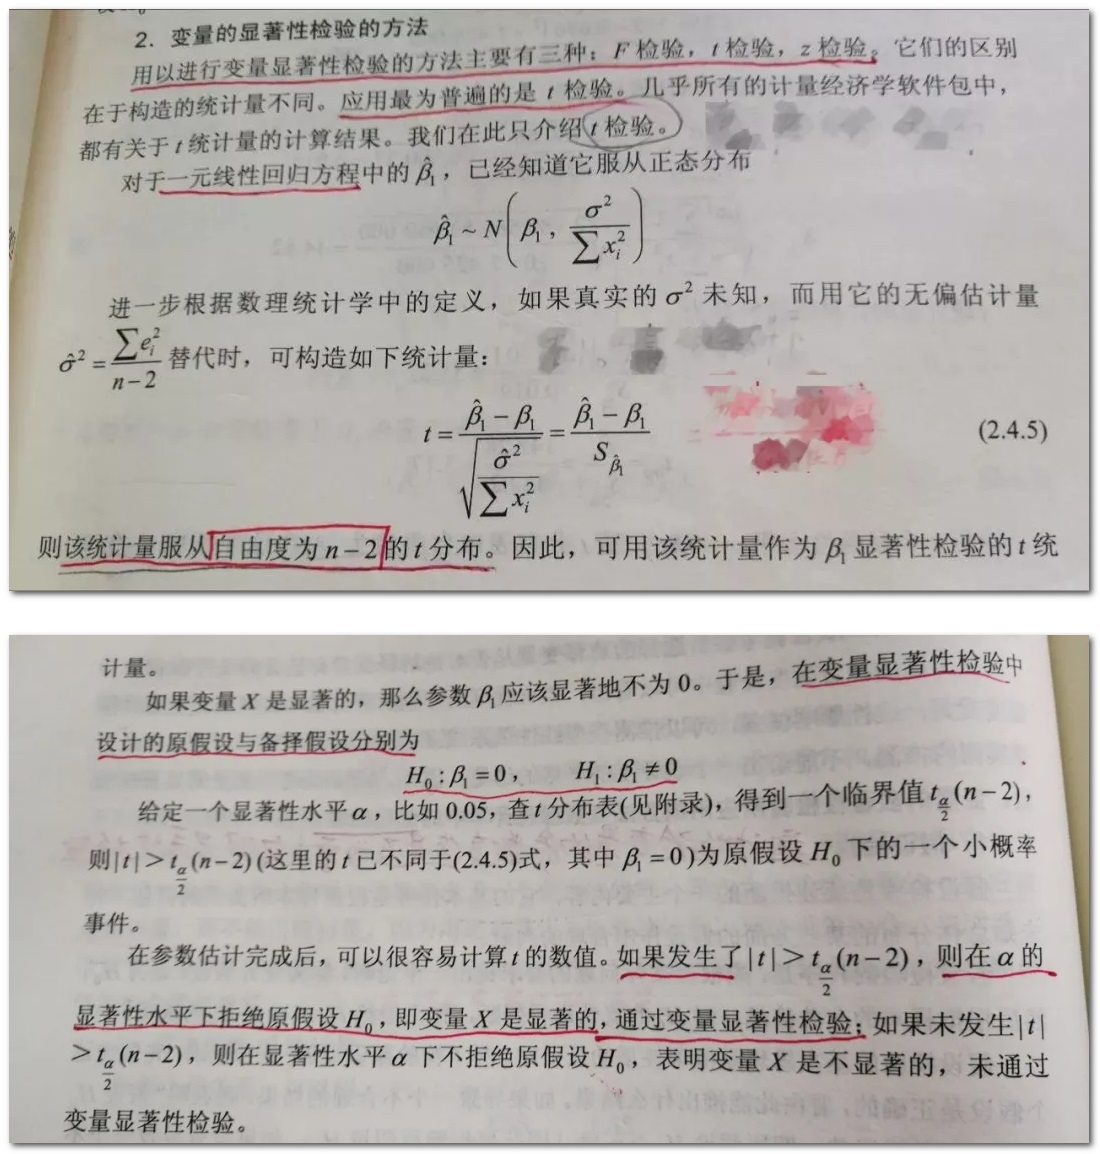 2. 变量的显著性检验的方法
用以进行变量显著性检验的方法主要有三种：F 检验，t 检验，z 检验。它们的区别
在于构造的统计量不同。应用最为普遍的是 t 检验。几乎所有的计量经济学软件包中，
都有关于 t 统计量的计算结果。我们在此只介绍 t 检验。
对于一元线性回归方程中的 β̂₁，已经知道它服从正态分布
β̂₁ ~ N(β₁, σ²/∑xᵢ²)
进一步根据数理统计学中的定义，如果真实的 σ² 未知，而用它的无偏估计量
σ̂² = ∑eᵢ²/(n−2) 替代时，可构造如下统计量：
t = (β̂₁ − β₁)/√(σ̂²/∑xᵢ²) = (β̂₁ − β₁)/S_β̂₁ (2.4.5)
则该统计量服从自由度为 n−2 的 t 分布。因此，可用该统计量作为 β₁ 显著性检验的 t 统
计量。
如果变量 X 是显著的，那么参数 β₁ 应该显著地不为 0。于是，在变量显著性检验中
设计的原假设与备择假设分别为
H₀：β₁=0， H₁：β₁≠0
给定一个显著性水平 α，比如 0.05，查 t 分布表(见附录)，得到一个临界值 t_{α/2}(n−2)，
则|t|＞t_{α/2}(n−2)(这里的 t 已不同于(2.4.5)式，其中 β₁=0)为原假设 H₀ 下的一个小概率
事件。
在参数估计完成后，可以很容易计算 t 的数值。如果发生了|t|＞t_{α/2}(n−2)，则在 α 的
显著性水平下拒绝原假设 H₀，即变量 X 是显著的，通过变量显著性检验；如果未发生|t|
＞t_{α/2}(n−2)，则在显著性水平 α 下不拒绝原假设 H₀，表明变量 X 是不显著的，未通过
变量显著性检验。